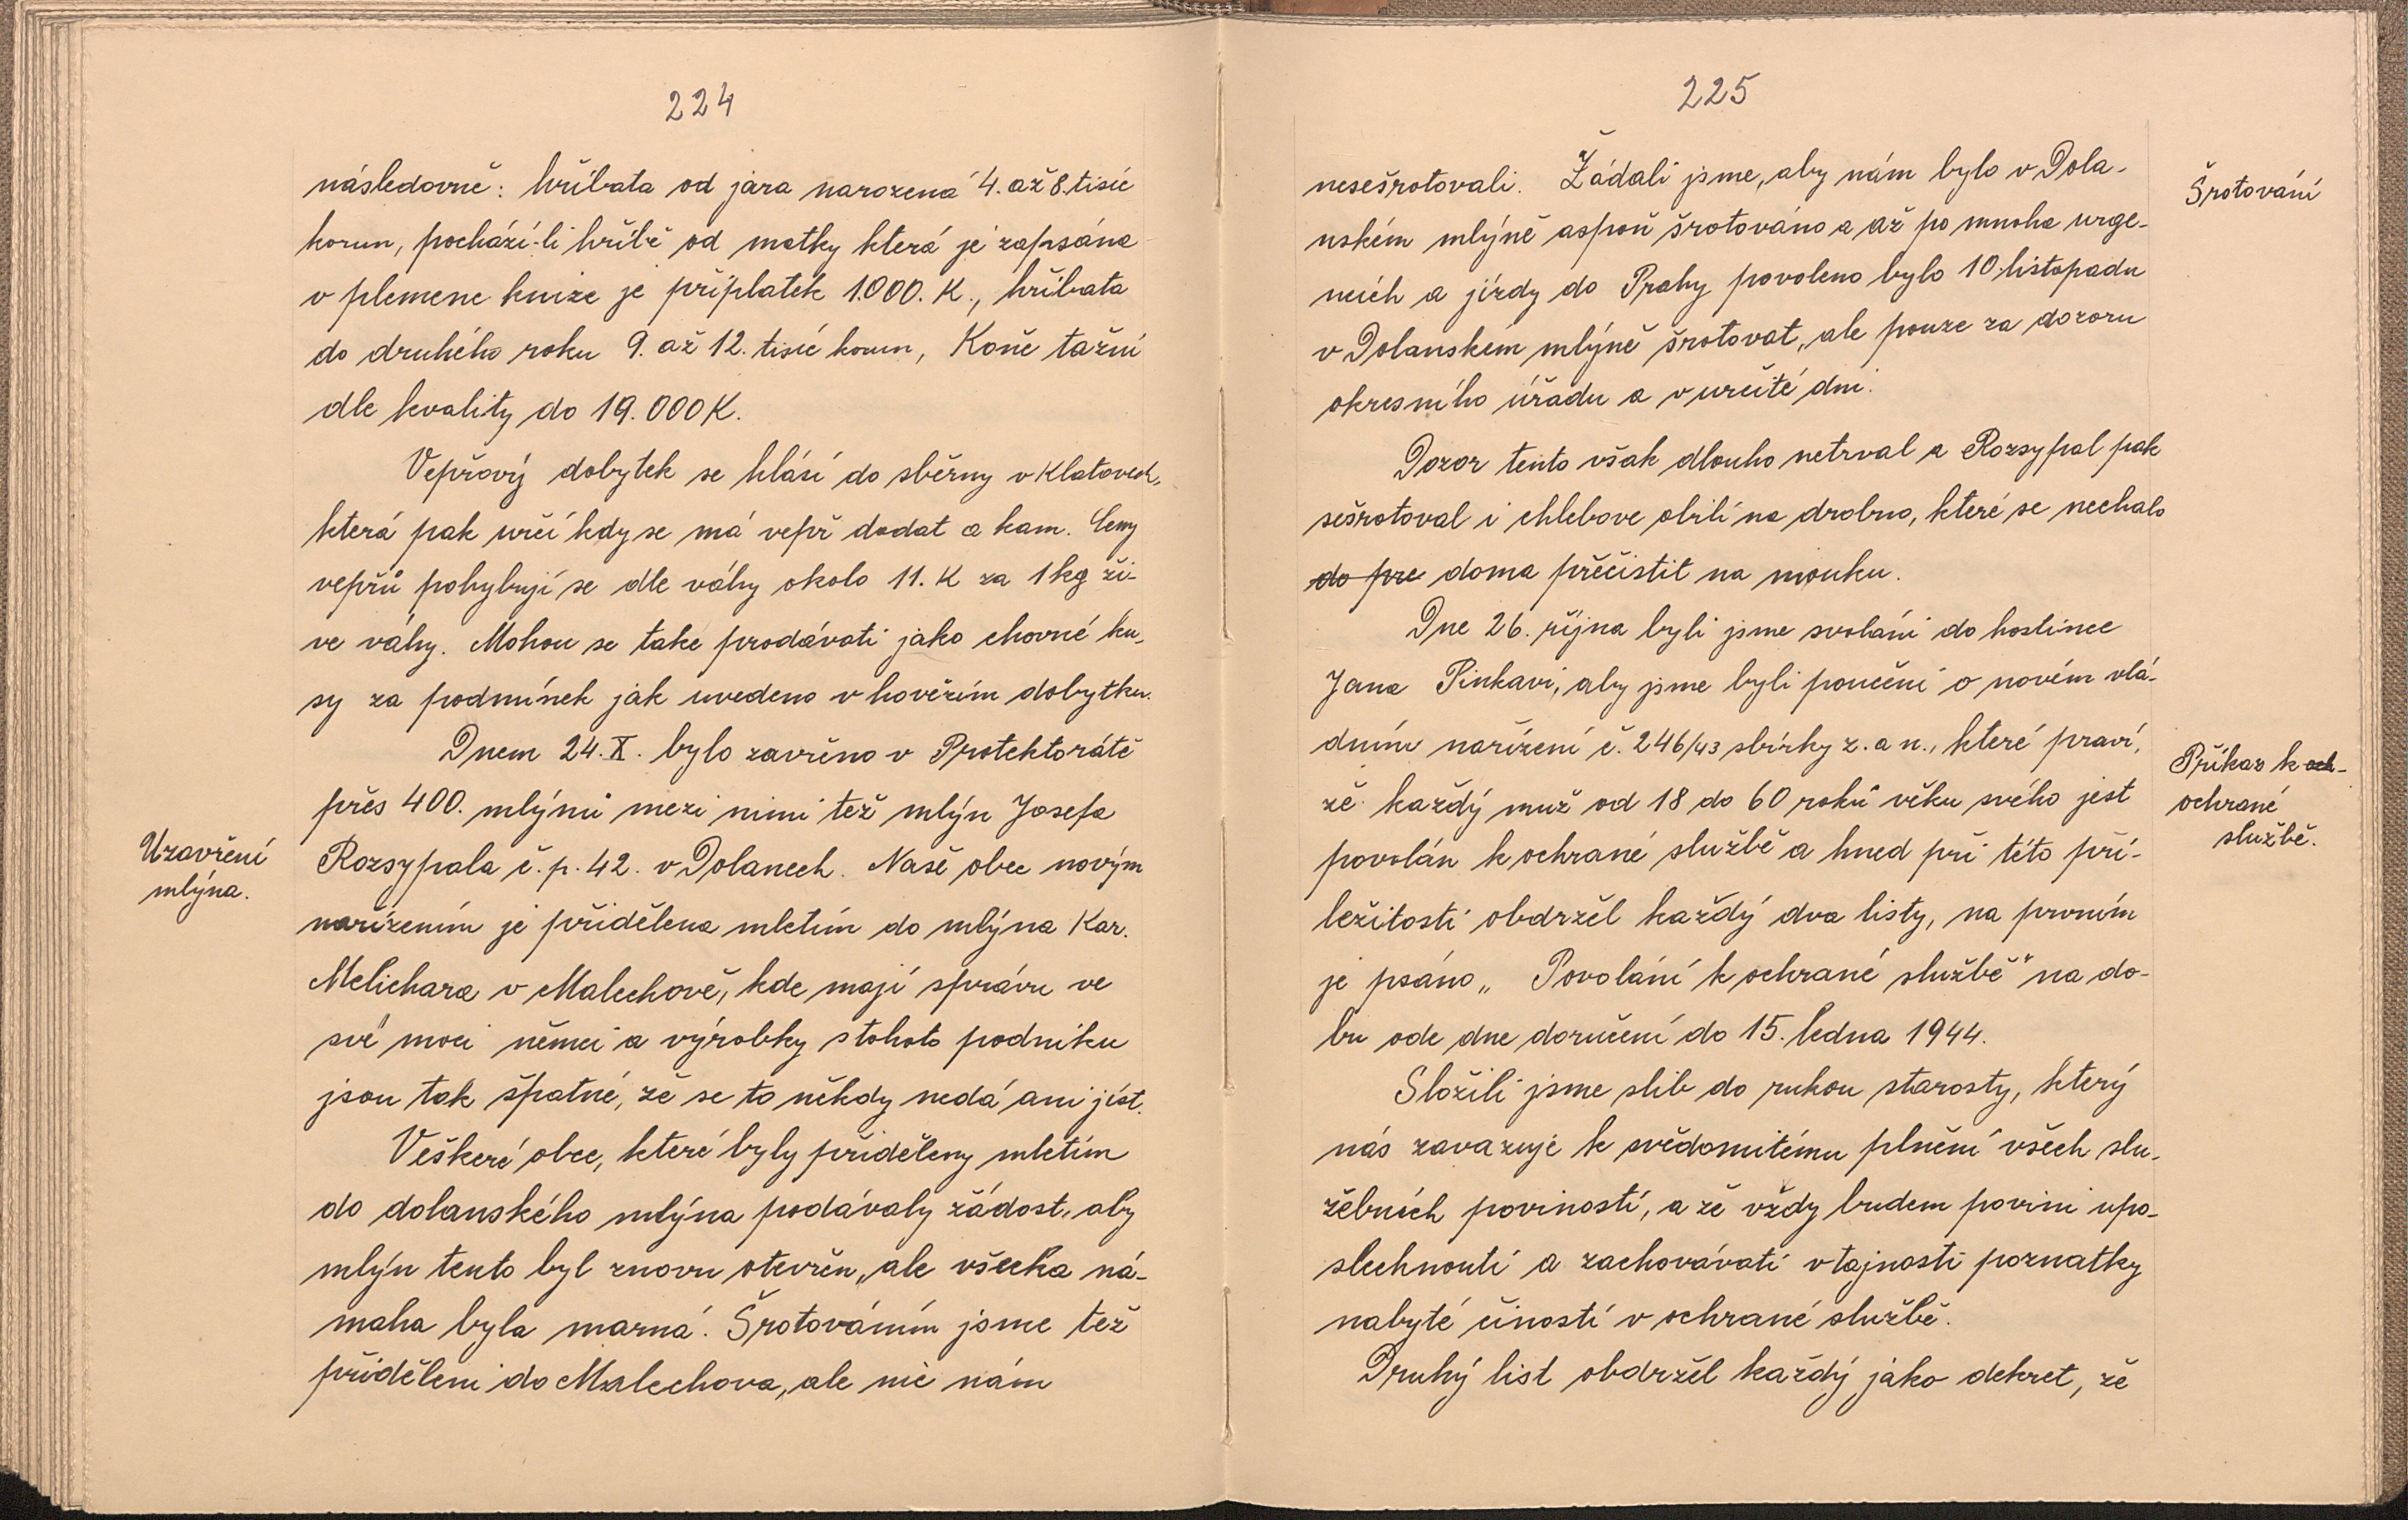 224
následovně: hříbata od jara narozená 4. až 8. tisíc
korun, pochází-li hříbě od matky která je zapsána
v plemene knize je příplatek 1.000. K., hříbata
do druhého roku 9. až 12. tisíc korun, Koně tažní
dle kvality do 19.000 K.
Vepřový dobytek se hlásí do sběrny v Klatovech,
která pak určí kdy se má vepř dodat a kam. Ceny
vepřů pohybují se dle váhy okolo 11. K za 1 kg ži-
ve váhy. Mohou se take prodávati jako chovné ku-
sy za podmínek jak uvedeno v hovězím dobytku.
Dnem 24. X. bylo zavřeno v Protektorátě
přes 400. mlýnů mezi nimi též mlýn Josefa
Uzavření
mlýna.
Rozsypala č. p. 42. v Dolanech. Naše obec novým
nařízením je přidělena mletím do mlýna Kar.
Melichara v Malechově, kde mají správu ve
své moci němci a výrobky s tohoto podniku
jsou tak špatné, že se to někdy nedá ani jíst.
Veškeré obce, které byly přiděleny mletím
do dolanského mlýna podávaly žádost, aby
mlýn tento byl znovu otevřen, ale všecka ná-
maha byla marná. Šrotováním jsme též
přiděleni do Malechova, ale nic nám
225
nesešrotovali. Žádali jsme, aby nám bylo v Dola-
Šrotování
nském mlýně aspoň šrotováno a až po mnoha urge-
ncích a jízdy do Prahy povoleno bylo 10. listopadu
v Dolanském mlýně šrotovat, ale pouze za dozoru
okresního úřadu a v určité dni.
Dozor tento však dlouho netrval a Rozsypal pak
sešrotoval i chlebove obilí na drobno, které se nechalo
do pre doma přečistit na mouku.
Dne 26. října byli jsme svoláni do hostince
Jana Pinkavi, aby jsme byli poučeni o novém vlá-
dním nařízení č. 246/43 sbírky z. a n., které praví,
Příkaz k och-
ochrané
službě.
že každý muž od 18 do 60 roků věku svého jest
povolán k ochrané službě a hned při této pří-
ležitosti obdržel každý dva listy, na prvním
je psáno „ Povolání k ochrané službě" na do-
bu ode dne doručení do 15. ledna 1944.
Složili jsme slib do rukou starosty, který
nás zavazuje k svědomitému plnění všech slu-
žebních poviností, a že vždy budem povini upo-
slechnouti a zachovávati v tajnosti poznatky
nabyté čiností v ochrané službě.
Druhý list obdržel každý jako dekret, že